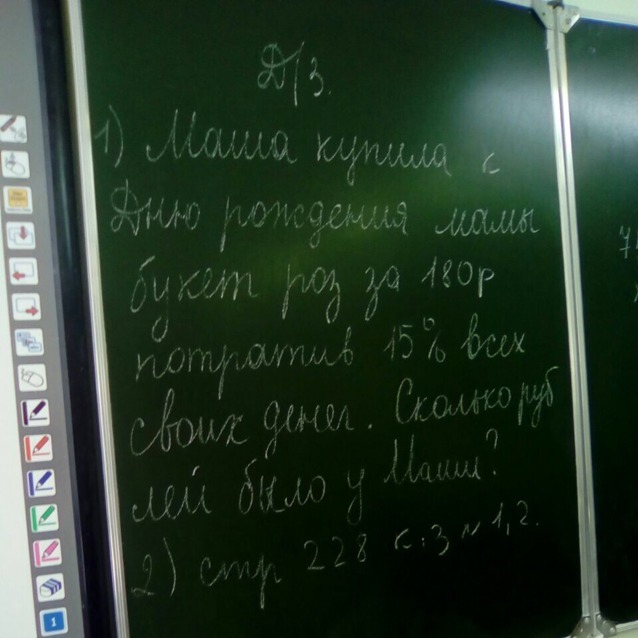 Д/З.
1) Маша купила к
Дню рождения мамы
букет роз за 180р
потратив 15% всех
своих денег. Сколько руб
лей было у Маши?
2) стр 228 к.з № 1,2.
1